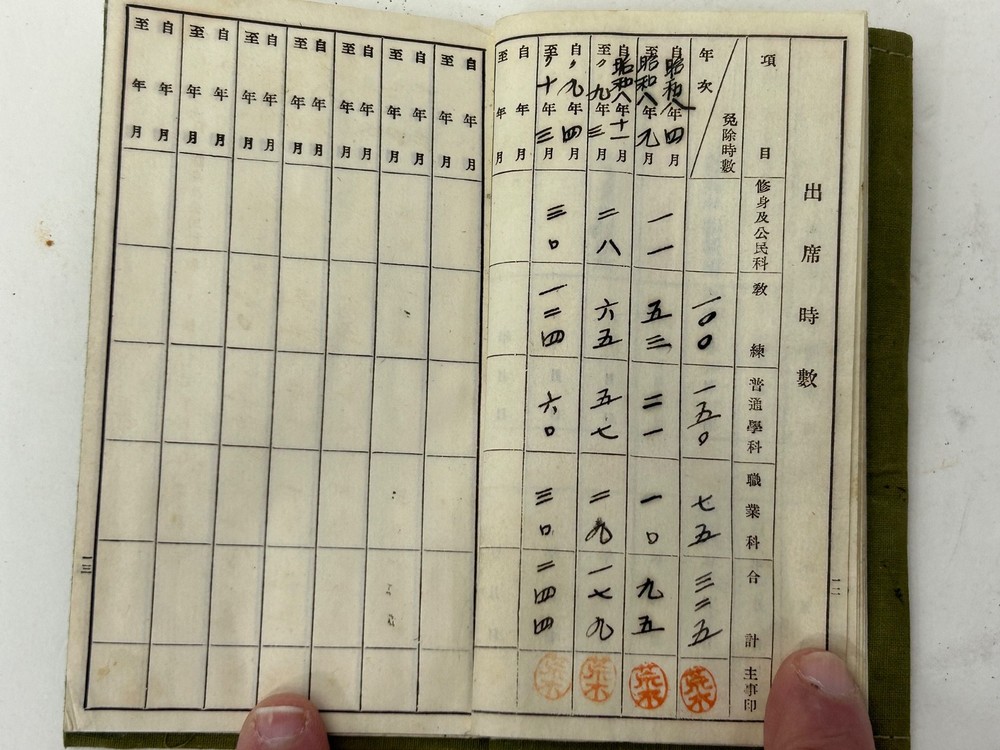 出席時數
項目
修身及公民科
教練
普通學科
職業科
合計
主事印
年次
免除時數
一〇〇
一五〇
七五
三二五
荒木
自昭和八年四月
至昭和八年九月
一一
五三
二一
一〇
九五
荒木
自昭和八年十一月
至〃九年三月
二八
六五
五七
二九
一七九
荒木
自〃九年四月
至〃十年三月
三〇
一二四
六〇
三〇
二四四
荒木
自年月
至年月
一二
自年月
至年月
自年月
至年月
自年月
至年月
自年月
至年月
自年月
至年月
自年月
至年月
自年月
至年月
一三